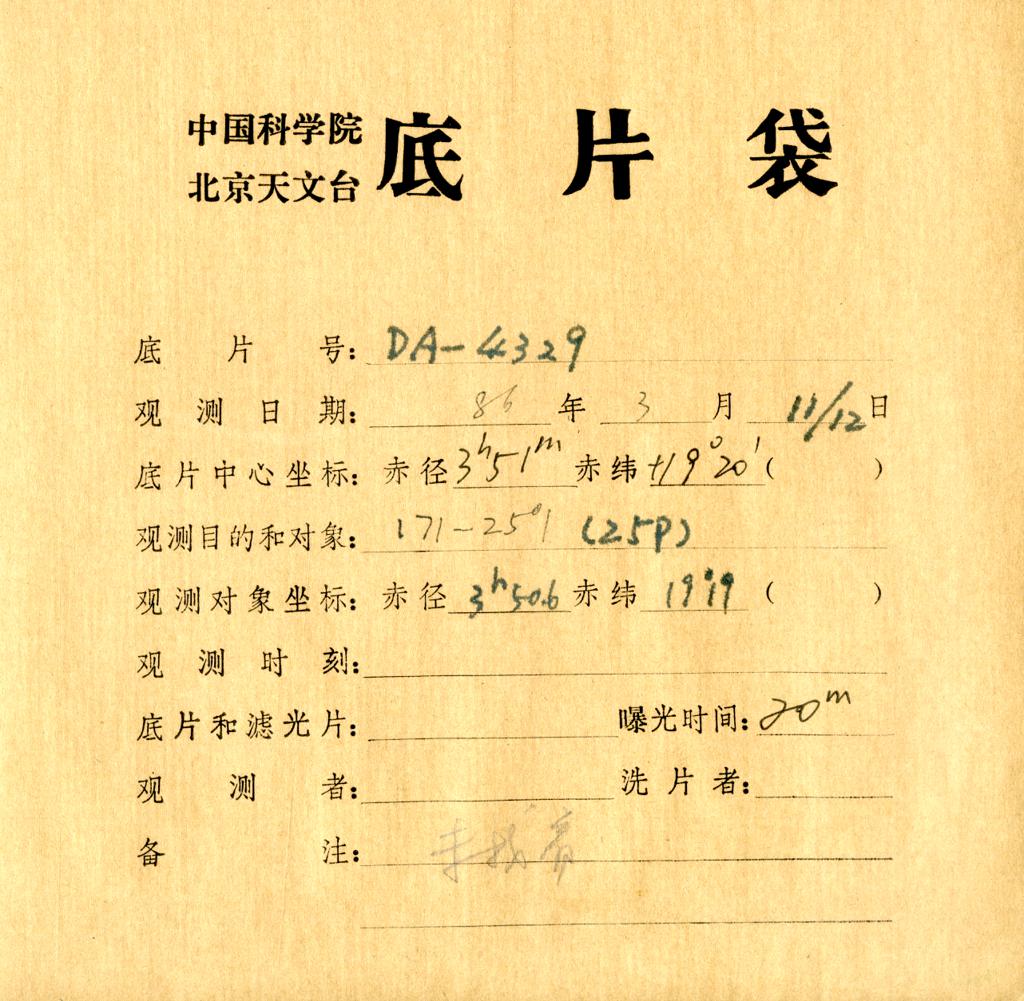 中国科学院
北京天文台 底片袋
底片号: DA-4329
观测日期: 86年 3月 11/12日
底片中心坐标: 赤径 3h51m 赤纬 +19°20′ ( )
观测目的和对象: 171-25°1 (25P)
观测对象坐标: 赤径 3h50.6 赤纬 19°19 ( )
观测时刻:
底片和滤光片: 曝光时间: 20m
观测者: 洗片者:
备注: